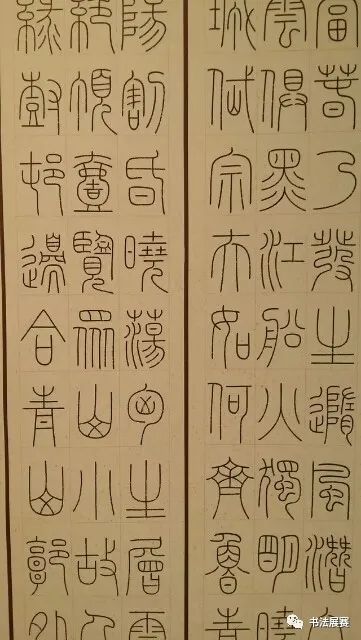 當春乃發生隨風潛
雲俱黑江船火獨明曉
城岱宗夫如何齊魯青
陽割昏曉蕩匈生層雲
絕頂壹覽眾山小故人
綠樹邨邊合青山郭外
书法展赛